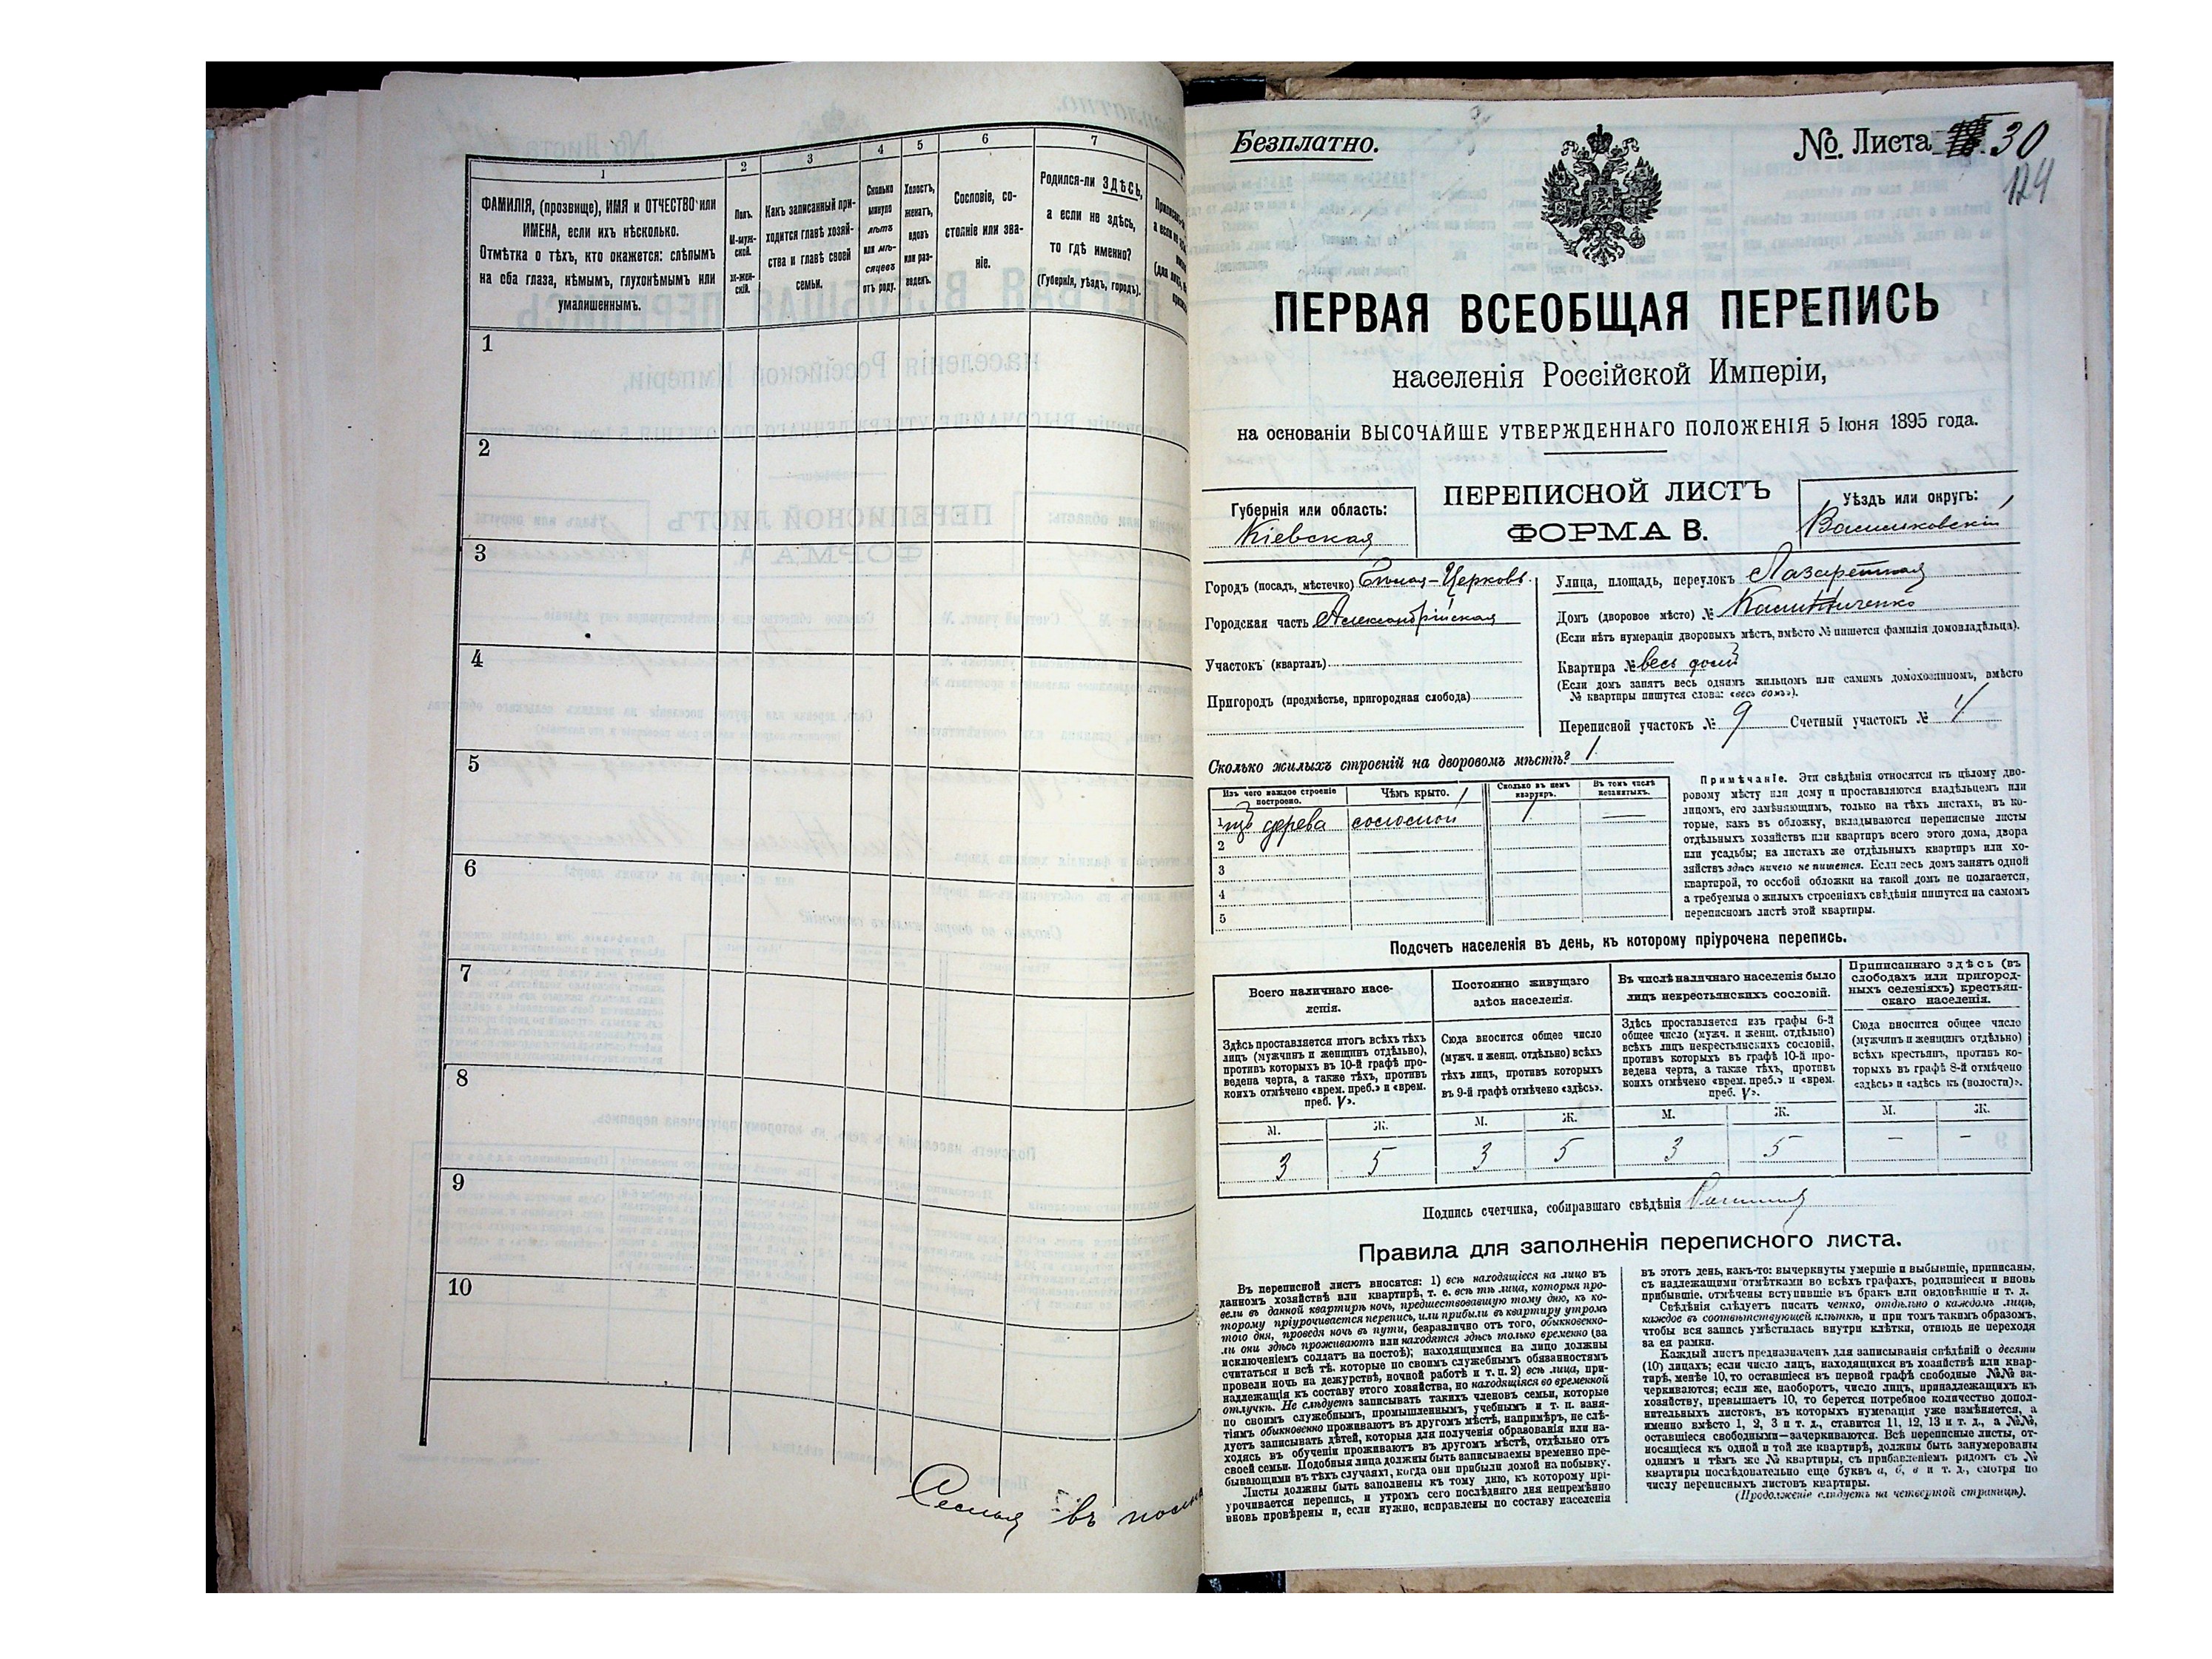 1
2
3
4
5
6
7
ФАМИЛІЯ, (прозвище), ИМЯ и ОТЧЕСТВО или
ИМЕНА, если ихъ нѣсколько.
Отмѣтка о тѣхъ, кто окажется: слѣпымъ
на оба глаза, нѣмымъ, глухонѣмымъ или
умалишеннымъ.
Полъ.
М-муж-
ской.
Ж-жен-
скій.
Какъ записанный при-
ходится главѣ хозяй-
ства и главѣ своей
семьи.
Сколько
минуло
лѣтъ
или мѣ-
сяцевъ
отъ роду.
Холостъ,
женатъ,
вдовъ
или раз-
веденъ.
Сословіе, со-
стояніе или зва-
ніе.
Родился-ли ЗДѢСЬ,
а если не здѣсь,
то гдѣ именно?
(Губернія, уѣздъ, городъ).
1
2
3
4
5
6
7
8
9
10
Безплатно.
№ Листа 30
124
ПЕРВАЯ ВСЕОБЩАЯ ПЕРЕПИСЬ
населенія Россійской Имперіи,
на основаніи ВЫСОЧАЙШЕ УТВЕРЖДЕННАГО ПОЛОЖЕНІЯ 5 Іюня 1895 года.
Губернія или область:
Кіевская
ПЕРЕПИСНОЙ ЛИСТЪ
ФОРМА В.
Уѣздъ или округъ:
Васильковскій
Городъ (посадъ, мѣстечко) Бѣлая-Церковь.
Городская часть Александрійская
Участокъ (кварталъ)
Пригородъ (предмѣстье, пригородная слобода)
Улица, площадь, переулокъ Лазаретная
Домъ (дворовое мѣсто) №
(Если нѣтъ нумераціи дворовыхъ мѣстъ, вмѣсто № пишется фамилія домовладѣльца).
Квартира № весь домъ
(Если домъ занятъ весь однимъ жильцомъ или самимъ домохозяиномъ, вмѣсто
№ квартиры пишутся слова: «весь домъ»).
Переписной участокъ № 9 Счетный участокъ № 4
Сколько жилыхъ строеній на дворовомъ мѣстѣ? 1
Изъ чего каждое строеніе построено.
Чѣмъ крыто.
Сколько въ немъ квартиръ.
Въ томъ числѣ незанятыхъ.
1 изъ дерева соломой 1 —
2
3
4
5
Примѣчаніе. Эти свѣдѣнія относятся къ цѣлому дво-
ровому мѣсту или дому и проставляются владѣльцемъ или
лицомъ, его замѣняющимъ, только на тѣхъ листахъ, въ ко-
торые, какъ въ обложку, вкладываются переписные листы
отдѣльныхъ хозяйствъ или квартиръ всего этого дома, двора
или усадьбы; на листахъ же отдѣльныхъ квартиръ или хо-
зяйствъ здѣсь ничего не пишется. Если весь домъ занятъ одной
квартирой, то особой обложки на такой домъ не полагается,
а требуемыя о жилыхъ строеніяхъ свѣдѣнія пишутся на самомъ
переписномъ листѣ этой квартиры.
Подсчетъ населенія въ день, къ которому пріурочена перепись.
Всего наличнаго насе-
ленія.
Постоянно живущаго
здѣсь населенія.
Въ числѣ наличнаго населенія было
лицъ некрестьянскихъ сословій.
Приписаннаго здѣсь (въ
слободахъ или пригород-
ныхъ селеніяхъ) крестьян-
скаго населенія.
Здѣсь проставляется итогъ всѣхъ тѣхъ
лицъ (мужчинъ и женщинъ отдѣльно),
противъ которыхъ въ 10-й графѣ про-
ведена черта, а также тѣхъ, противъ
коихъ отмѣчено «врем. преб.» и «врем.
преб. V».
Сюда вносится общее число
(мужч. и женщ. отдѣльно) всѣхъ
тѣхъ лицъ, противъ которыхъ
въ 9-й графѣ отмѣчено «здѣсь».
Здѣсь проставляется изъ графы 6-й
общее число (мужч. и женщ. отдѣльно)
всѣхъ лицъ некрестьянскихъ сословій,
противъ которыхъ въ графѣ 10-й про-
ведена черта, а также тѣхъ, противъ
коихъ отмѣчено «врем. преб.» и «врем.
преб. V».
Сюда вносится общее число
(мужчинъ и женщинъ отдѣльно)
всѣхъ крестьянъ, противъ ко-
торыхъ въ графѣ 8-й отмѣчено
«здѣсь» и «здѣсь къ (волости)».
М. Ж. М. Ж. М. Ж. М. Ж.
3 5 3 5 3 5 — —
Подпись счетчика, собиравшаго свѣдѣнія
Правила для заполненія переписного листа.
Въ переписной листъ вносятся: 1) всѣ находящіеся на лицо въ
данномъ хозяйствѣ или квартирѣ, т. е. всѣ тѣ лица, которыя про-
вели въ данной квартирѣ ночь, предшествовавшую тому дню, къ ко-
торому пріурочивается перепись, или прибыли въ квартиру утромъ
того дня, проведя ночь въ пути, безразлично отъ того, обыкновенно-
ли они здѣсь проживаютъ или находятся здѣсь только временно (за
исключеніемъ солдатъ на постоѣ); находящимися на лицо должны
считаться и всѣ тѣ, которые по своимъ служебнымъ обязанностямъ
провели ночь на дежурствѣ, ночной работѣ и т. п. 2) всѣ лица, при-
надлежащія къ составу этого хозяйства, но находящіяся во временной
отлучкѣ. Не слѣдуетъ записывать такихъ членовъ семьи, которые
по своимъ служебнымъ, промышленнымъ, учебнымъ и т. п. заня-
тіямъ обыкновенно проживаютъ въ другомъ мѣстѣ, напримѣръ, не слѣ-
дуетъ записывать дѣтей, которыя для полученія образованія или на-
ходясь въ обученіи проживаютъ въ другомъ мѣстѣ, отдѣльно отъ
своей семьи. Подобныя лица должны быть записываемы временно пре-
бывающими въ тѣхъ случаяхъ, когда они прибыли домой на побывку.
Листы должны быть заполнены къ тому дню, къ которому прі-
урочивается перепись, и утромъ сего послѣдняго дня непремѣнно
вновь провѣрены и, если нужно, исправлены по составу населенія
въ этотъ день, какъ-то: вычеркнуты умершіе и выбывшіе, приписаны,
съ надлежащими отмѣтками во всѣхъ графахъ, родившіеся и вновь
прибывшіе, отмѣчены вступившіе въ бракъ или овдовѣвшіе и т. д.
Свѣдѣнія слѣдуетъ писать четко, отдѣльно о каждомъ лицѣ,
каждое въ соотвѣтствующей клѣткѣ, и при томъ такимъ образомъ,
чтобы вся запись умѣстилась внутри клѣтки, отнюдь не переходя
за ея рамки.
Каждый листъ предназначенъ для записыванія свѣдѣній о десяти
(10) лицахъ; если число лицъ, находящихся въ хозяйствѣ или квар-
тирѣ, менѣе 10, то оставшіеся въ первой графѣ свободные №№ за-
черкиваются; если же, наоборотъ, число лицъ, принадлежащихъ къ
хозяйству, превышаетъ 10, то берется потребное количество допол-
нительныхъ листовъ, въ которыхъ нумерація уже измѣняется, а
именно вмѣсто 1, 2, 3 и т. д., ставится 11, 12, 13 и т. д., а №№,
оставшіеся свободными—зачеркиваются. Всѣ переписные листы, от-
носящіеся къ одной и той же квартирѣ, должны быть занумерованы
однимъ и тѣмъ же № квартиры, съ прибавленіемъ рядомъ съ №
квартиры послѣдовательно еще буквъ а, б, в и т. д., смотря по
числу переписныхъ листовъ квартиры.
(Продолженіе слѣдуетъ на четвертой страницѣ).